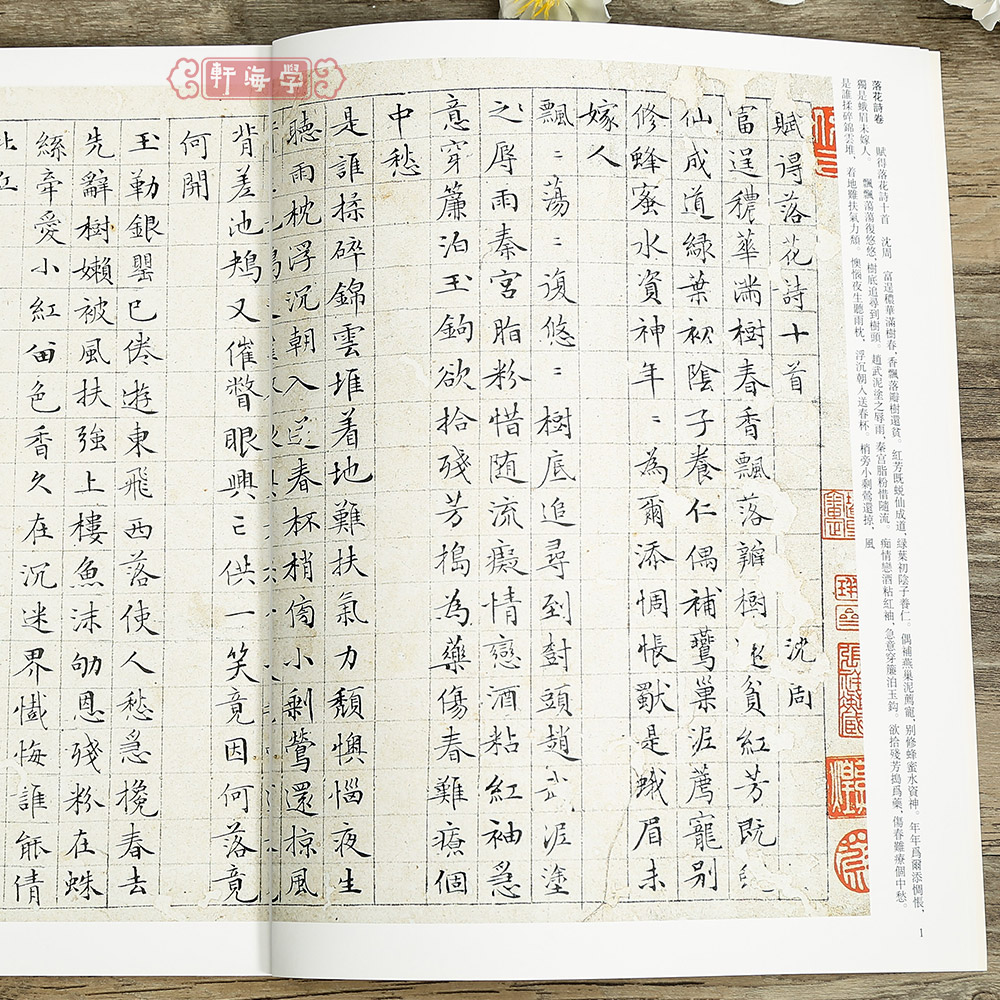 軒海學
落花詩卷 賦得落花詩十首 沈周 富逞穠華滿樹春，香飄落瓣樹還貧。紅芳既蛻仙成道，綠葉初陰子養仁。偶補燕巢泥薦寵，別修蜂蜜水資神。年年爲爾添惆悵，
獨是蛾眉未嫁人。 飄飄蕩蕩復悠悠，樹底追尋到樹頭。趙武泥塗之辱雨，秦宮脂粉惜隨流。痴情戀酒粘紅袖，急意穿簾泊玉鈎。欲拾殘芳搗爲藥，傷春難療個中愁。
是誰揉碎錦雲堆，着地難扶氣力頹。懊惱夜生聽雨枕，浮沉朝入送春杯。梢旁小剩鶯還掠，風
賦得落花詩十首 沈周
富逞穠華滿樹春香飄落瓣樹還貧紅芳既蛻
仙成道綠葉初陰子養仁偶補鷰巢泥薦寵別
修蜂蜜水資神年〻為爾添惆悵獸是蛾眉未
嫁人
飄〻蕩〻復悠〻樹底追尋到樹頭趙武泥塗
之辱雨秦宮脂粉惜随流癡情戀酒粘紅袖急
意穿簾泊玉鉤欲拾殘芳搗為藥傷春難療個
中愁
是誰揉碎錦雲堆着地難扶氣力頹懊惱夜生
聽雨枕浮沉朝入送春杯梢傍小剩鶯還掠風
背差池鴂又催瞥眼興亡供一笑竟因何落竟
何開
玉勒銀罌已倦遊東飛西落使人愁急攙春去
先辭樹嬾被風扶強上樓魚沫劬恩殘粉在蛛
絲牽愛小紅留色香久在沉迷界懺悔誰能倩
1